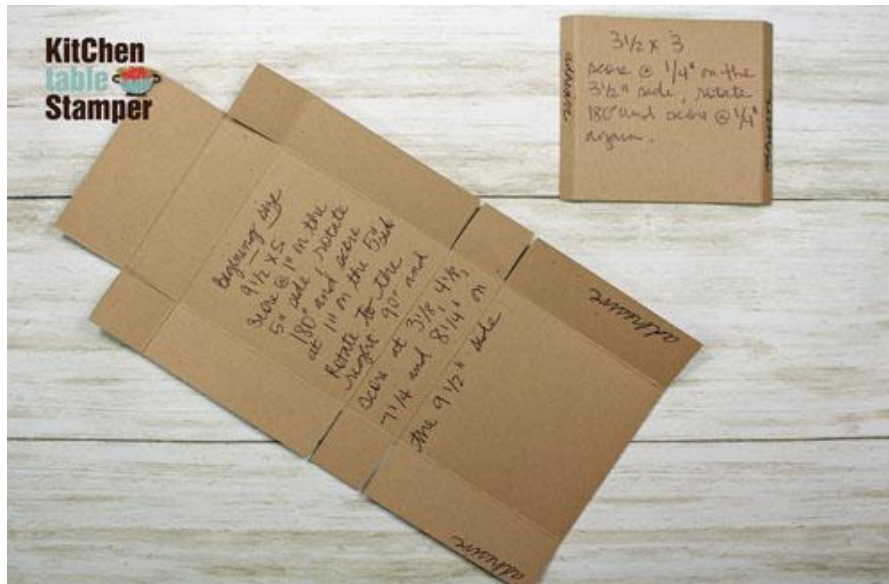 KitChen
table
Stamper
3 1/2 x 3
score @ 1/4" on the
3 1/2" side, rotate
180° and score @ 1/4"
again.
adhesive
adhesive
beginning size
9 1/2 x 5
Score @ 1" on the
5" side, rotate
180° and score
at 1" on the 5" side
Rotate to the
right 90° and
score at 3 1/8, 4 1/8,
7 1/4 and 8 1/4" on
the 9 1/2" side
adhesive
adhesive